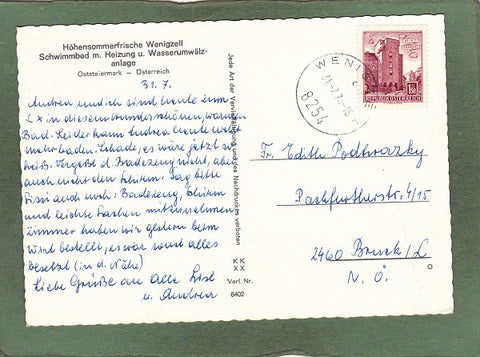 Höhensommerfrische Wenigzell
Schwimmbad m. Heizung u. Wasserumwälz-
anlage
Oststeiermark – Österreich
31. 7.
Andrea und ich sind heute zum
1. x in diesem wunderschönen, warmen
Bad. Leider kann Andrea heute nicht
mehr baden. Schade, es wäre jetzt so
heiß. Vergeßt d. Badezeug nicht, aber
auch nicht den Schirm. Sag bitte
Sissi auch noch: Badezeug, Schirm
und leichte Sachen mitzunehmen.
Zimmer haben wir gestern beim
Wirt bestellt, es war sonst alles
besetzt (in d. Nähe)
Liebe Grüße an Alle Lisl
u. Andrea
Jede Art der Vervielfältigung und des Nachdruckes verboten
KK
XX
Verl. Nr.
6402
WENI
8254
REPUBLIK ÖSTERREICH
Fr. Edith Podhrazky
Packfurtherstr. 4/15
2460 Bruck/L
N. Ö.